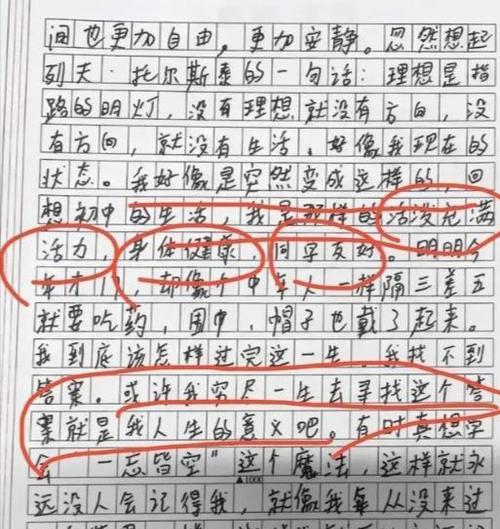 间也更加自由，更加安静。忽然想起
列夫·托尔斯泰的一句话：理想是指
路的明灯，没有理想就没有方向，没
有方向，就没有生活。好像我现在的
状态。我好像是突然变成这样的，回
想初中的生活，我是那样的活泼充满
活力，身体健康，同学友好。明明今
年才17，却像个中年人一样隔三差五
就要吃药，围巾、帽子也戴了起来。
我到底该怎样过完这一生，我找不到
答案。或许我穷尽一生去寻找这个答
案就是我人生的意义吧。有时真想学
会“一忘皆空”这个魔法，这样就永
▲1000
远没人会记得我，就像我从没来过